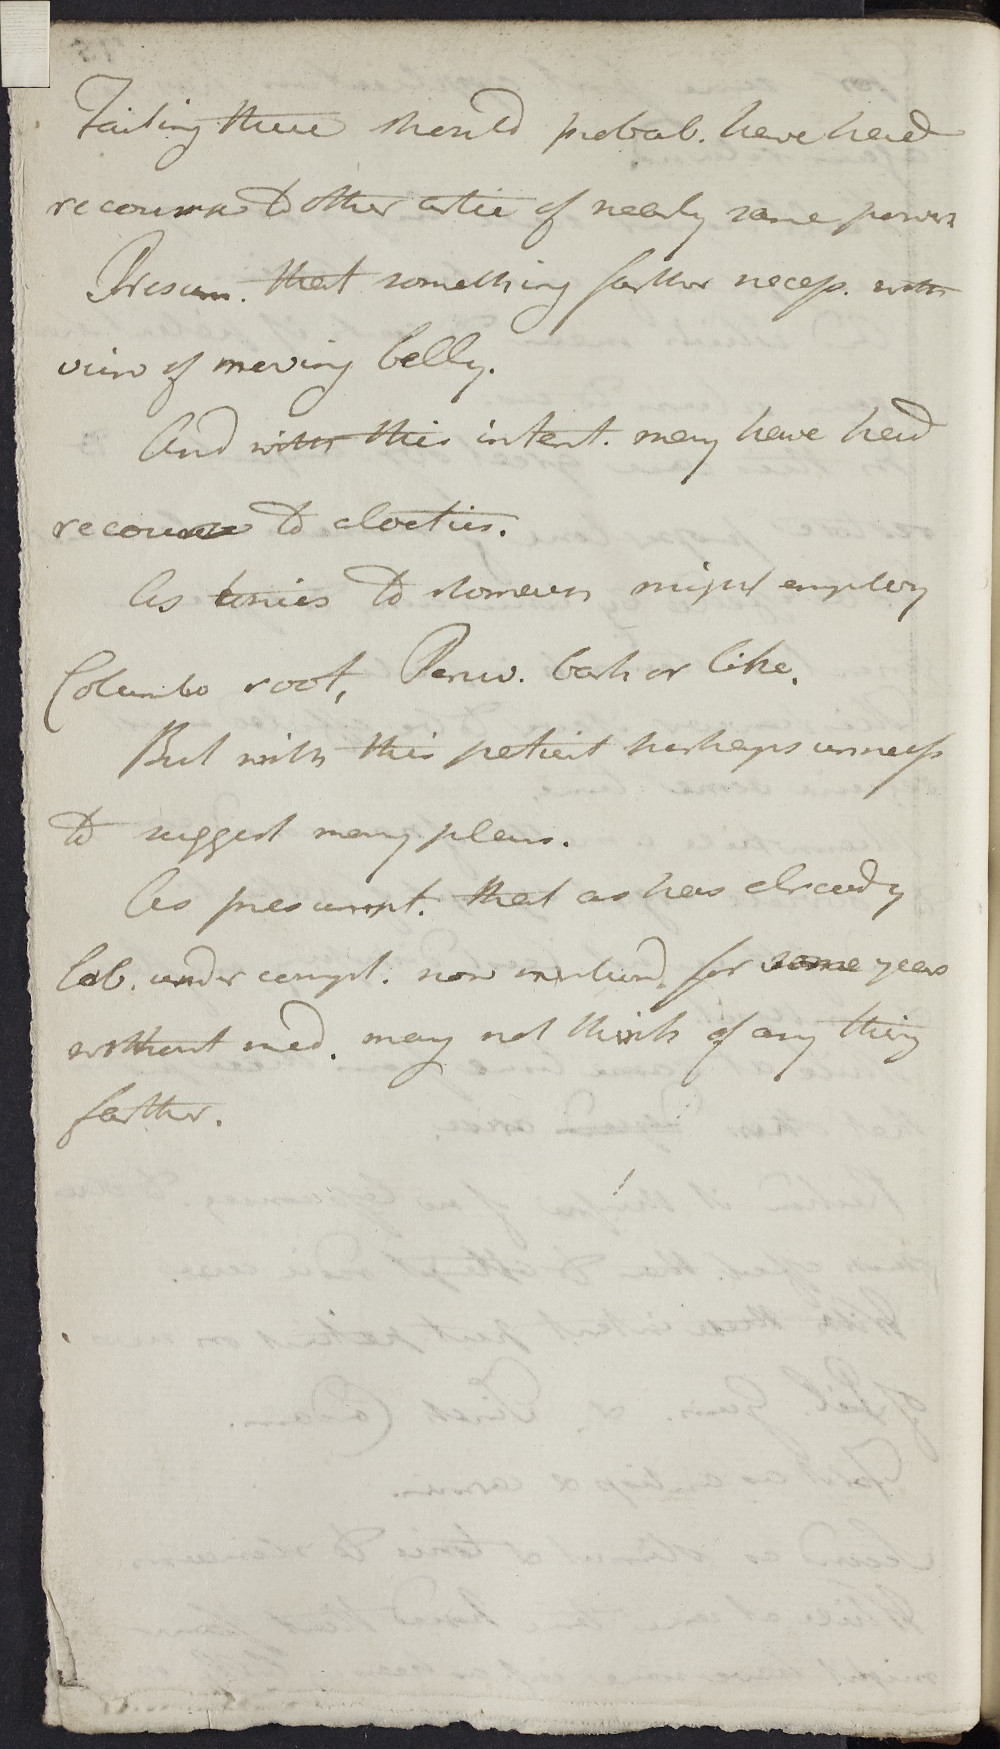 Failing these should probab. have had
recourse to other artic of nearly same power
Presum. that something farther necess. with
view of moving belly.
And with this intent. may have had
recourse to clocties.
As tonics to stomach might employ
Columbo root, Peruv. bark or like.
But with this patient perhaps unness
to suggest many plans.
As presumpt. that as has already
lab. under compt. now mentiond for some years
without med. may not think of any thing
farther.